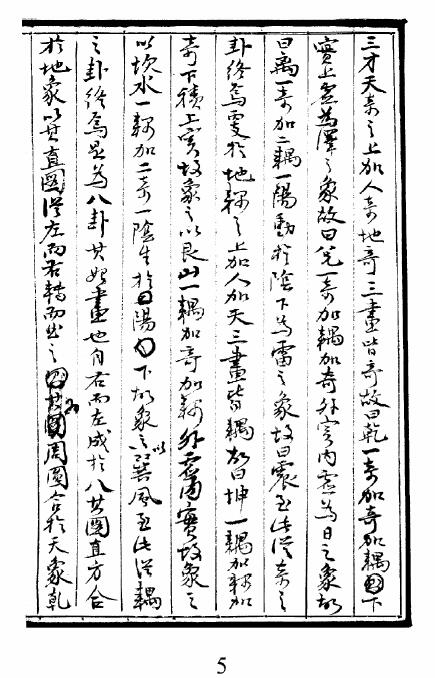 三才天奇之上加人奇地奇三畫皆奇故曰乾一奇加奇加耦下
實上虛為澤之象故曰兌一奇加耦加奇外實內虛為日之象故
曰離一奇加二耦一陽動於陰下為雷之象故曰震至此從奇之
卦終焉更於地耦之上加人加天三畫皆耦故曰坤一耦加耦加
奇下積上實故象之以艮山一耦加奇加耦外虛內實故象之
以坎水一耦加二奇一陰生於陽下故象之以巽風至此從耦
之卦終焉是為八卦其始畫也自右而左成於八其圖直方合
於地象以其直圖從左而右轉而出之為圓圖合於天象乾
5